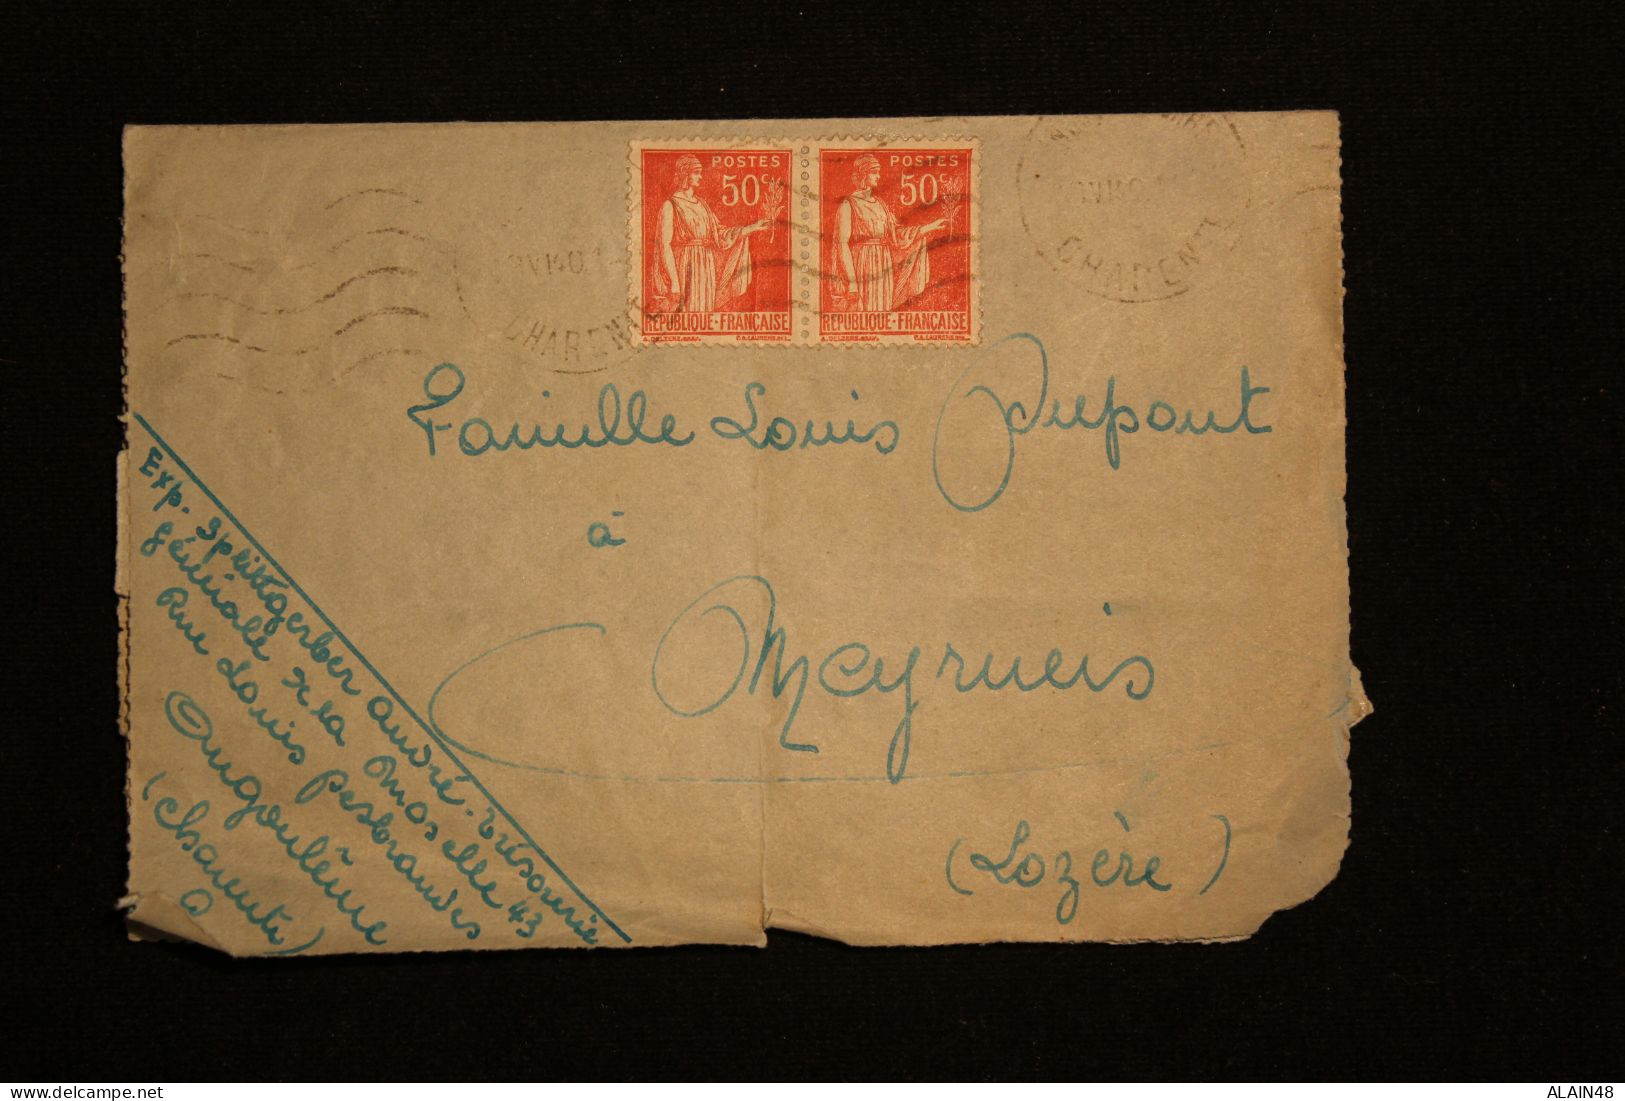 POSTES
50c
RÉPUBLIQUE·FRANÇAISE
POSTES
50c
RÉPUBLIQUE·FRANÇAISE
CHARENTE
CHARENTE
Famille Louis Dupont
à
Meyrueis
(Lozère)
Exp. André Trésorerie
générale de la Moselle 43
Rue Louis
Angoulême
(Charente)
delcampe.net
ALAIN48